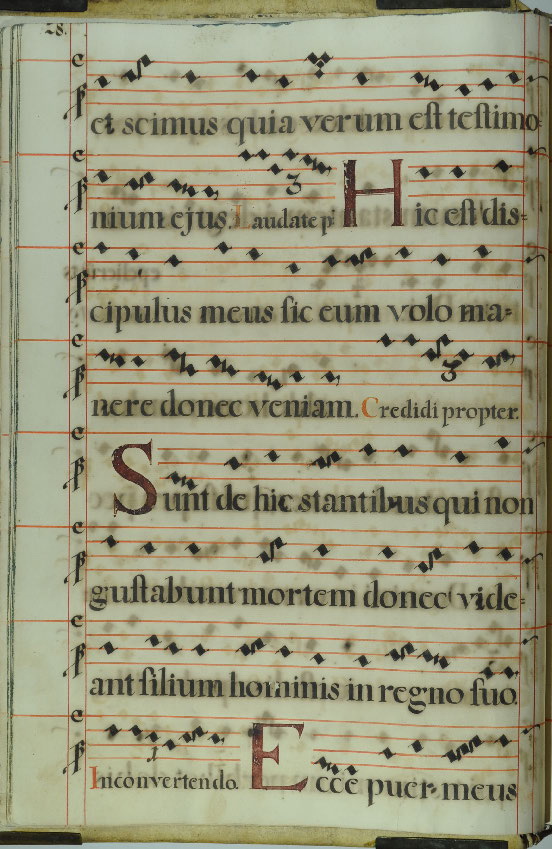 28.
et scimus quia verum est testimo-
nium ejus. Laudate p
Hic est dis-
cipulus meus sic eum volo ma-
nere donec veniam. Credidi propter.
Sunt de hic stantibus qui non
gustabunt mortem donec vide-
ant filium hominis in regno suo.
In convertendo. Ecce puer meus